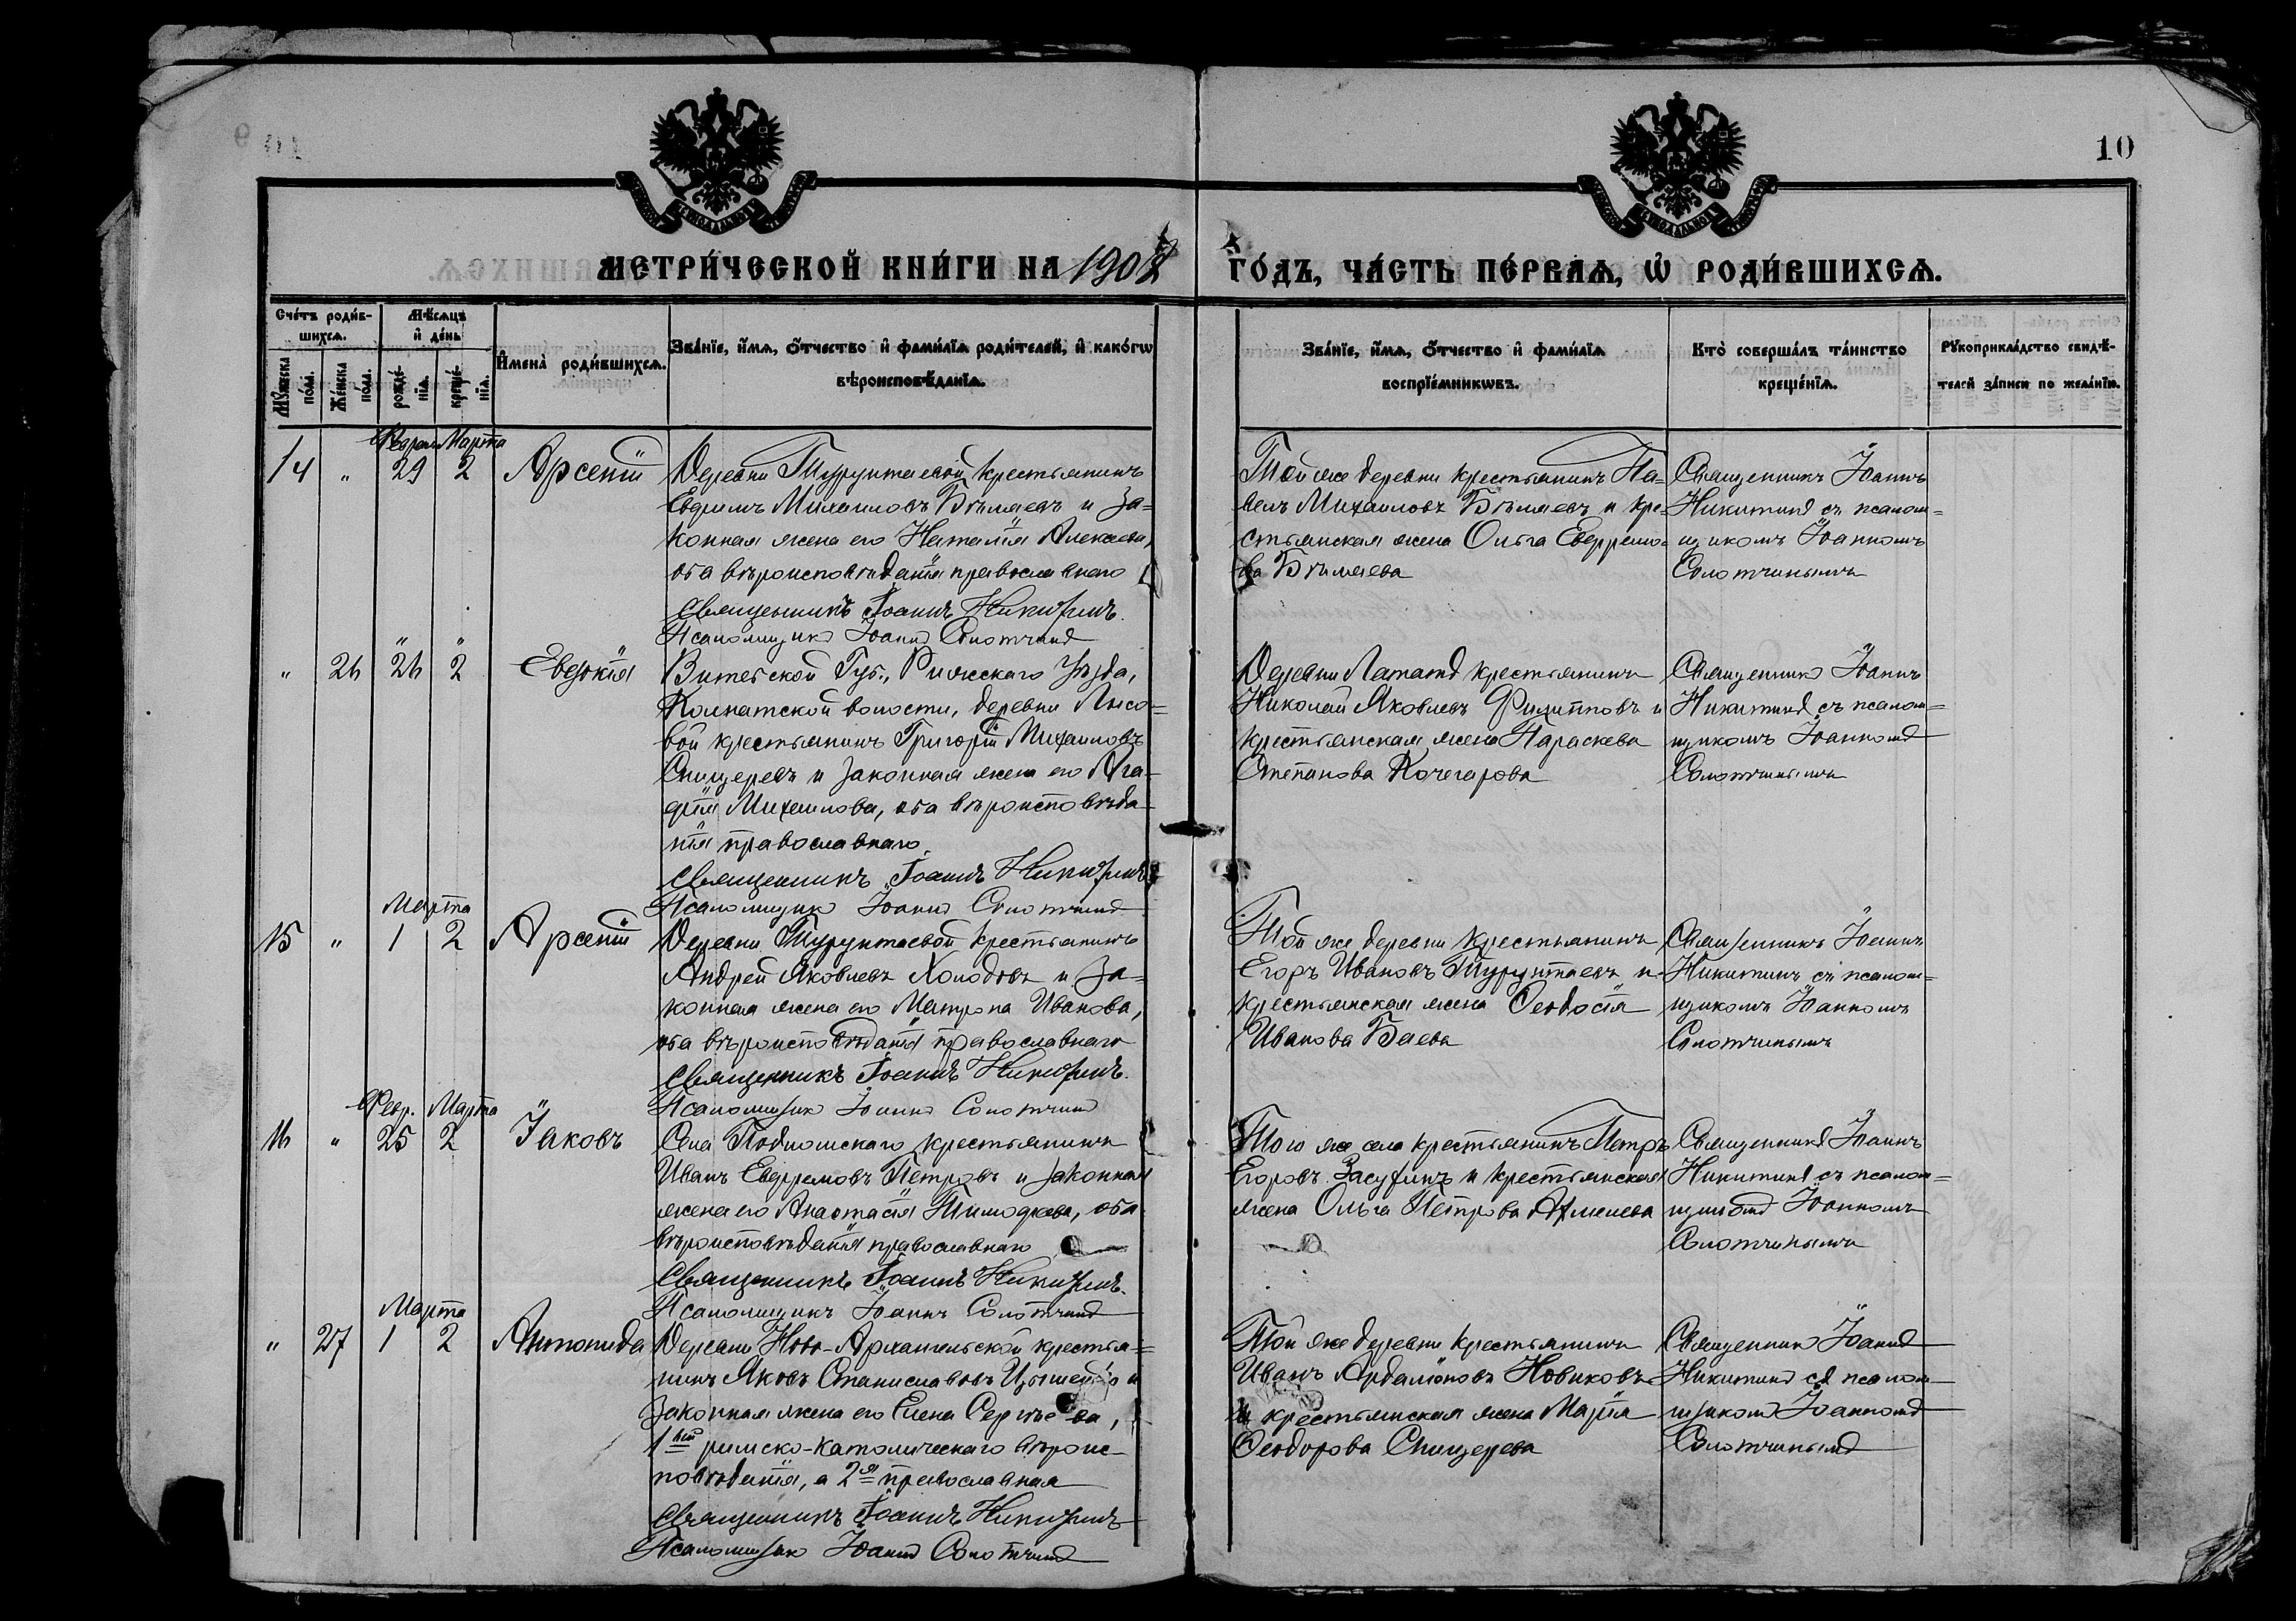 10
МЕТРИ́ЧЕСКОЙ КНИ́ГИ НА 1908
ГО́ДЪ, ЧА́СТЬ ПЕ́РВАѦ, Ѡ҆ РОДИ́ВШИХСѦ.
Сче́тъ роди́в-
шихсѧ.
Мѣ́сѧцъ
и҆ де́нь
Мꙋ́жеска
по́ла.
Же́нска
по́ла.
рожде́-
нїѧ.
креще́-
нїѧ.
И҆мена̀ роди́вшихсѧ.
Зва́нїе, и҆́мѧ, ѻ҆́тчество и҆ фами́лїѧ роди́телей, и҆ како́гѡ
вѣроисповѣ́данїѧ.
Зва́нїе, и҆́мѧ, ѻ҆́тчество и҆ фами́лїѧ
воспрїе́мникѡвъ.
Кто̀ соверша́лъ та́инство
креще́нїѧ.
Рꙋкоприкла́дство свидѣ́-
телей за́писи по жела́нїю.
Феврал Марта
14 " 29 2 Арсенiй
Деревни Турунтаевой крестьянинъ
Ефремъ Михаиловъ Бѣляевъ и за-
конная жена его Наталiя Алексеева,
оба вѣроисповѣданiя православнаго
Священникъ Iоаннъ Никитинъ.
Псаломщикъ Iоаннъ Солотчинъ
Той же деревни крестьянинъ Па-
велъ Михаиловъ Бѣляевъ и кре-
стьянская жена Ольга Ефремо-
ва Бѣляева
Священникъ Iоаннъ
Никитинъ съ псалом-
щикомъ Iоанномъ
Солотчинымъ
" "
" 26 26 2 Евдокiя
Витебской Губ., Рижскаго уѣзда,
волости, деревни Лысо-
вой крестьянинъ Григорiй Михаиловъ
Спицеревъ и законная жена его Ага-
фiя Михаилова, оба вѣроисповѣда-
нiя православнаго
Священникъ Iоаннъ Никитинъ
Псаломщикъ Iоаннъ Солотчинъ
Деревни Лататъ крестьянинъ
Николай Яковлевъ Филипповъ и
крестьянская жена Параскева
Степанова Кочегарова
Священникъ Iоаннъ
Никитинъ съ псалом-
щикомъ Iоанномъ
Солотчинымъ
Марта
15 " 1 2 Арсенiй
Деревни Турунтаевой крестьянинъ
Андрей Яковлевъ Холодовъ и за-
конная жена его Матрона Иванова,
оба вѣроисповѣданiя православнаго
Священникъ Iоаннъ Никитинъ.
Псаломщикъ Iоаннъ Солотчинъ
Той же деревни крестьянинъ
Егоръ Ивановъ Турунтаевъ и
крестьянская жена Ѳеодосiя
Иванова Баева
Священникъ Iоаннъ
Никитинъ съ псалом-
щикомъ Iоанномъ
Солотчинымъ
Февр. Марта
16 " 25 2 Iаковъ
Села Подломскаго крестьянинъ
Иванъ Ефремовъ Петровъ и законная
жена его Анастасiя Тимофеева, оба
вѣроисповѣданiя православнаго
Священникъ Iоаннъ Никитинъ.
Псаломщикъ Iоаннъ Солотчинъ
Того же села крестьянинъ Петръ
Егоровъ Засухинъ и крестьянская
жена Ольга Петрова
Священникъ Iоаннъ
Никитинъ съ псалом-
щикомъ Iоанномъ
Солотчинымъ
Марта
" 27 1 2 Антонида
Деревни Ново-Архангельской крестья-
нинъ Яковъ Станиславовъ и
законная жена его Елена Сергѣева,
1ый римско-католическаго вѣроис-
повѣданiя, а 2я православная
Священникъ Iоаннъ Никитинъ
Псаломщикъ Iоаннъ Солотчинъ
Той же деревни крестьянинъ
Иванъ Ардалiоновъ Новиковъ
и крестьянская жена Марiя
Ѳеодорова Спицерева
Священникъ Iоаннъ
Никитинъ съ псалом-
щикомъ Iоанномъ
Солотчинымъ